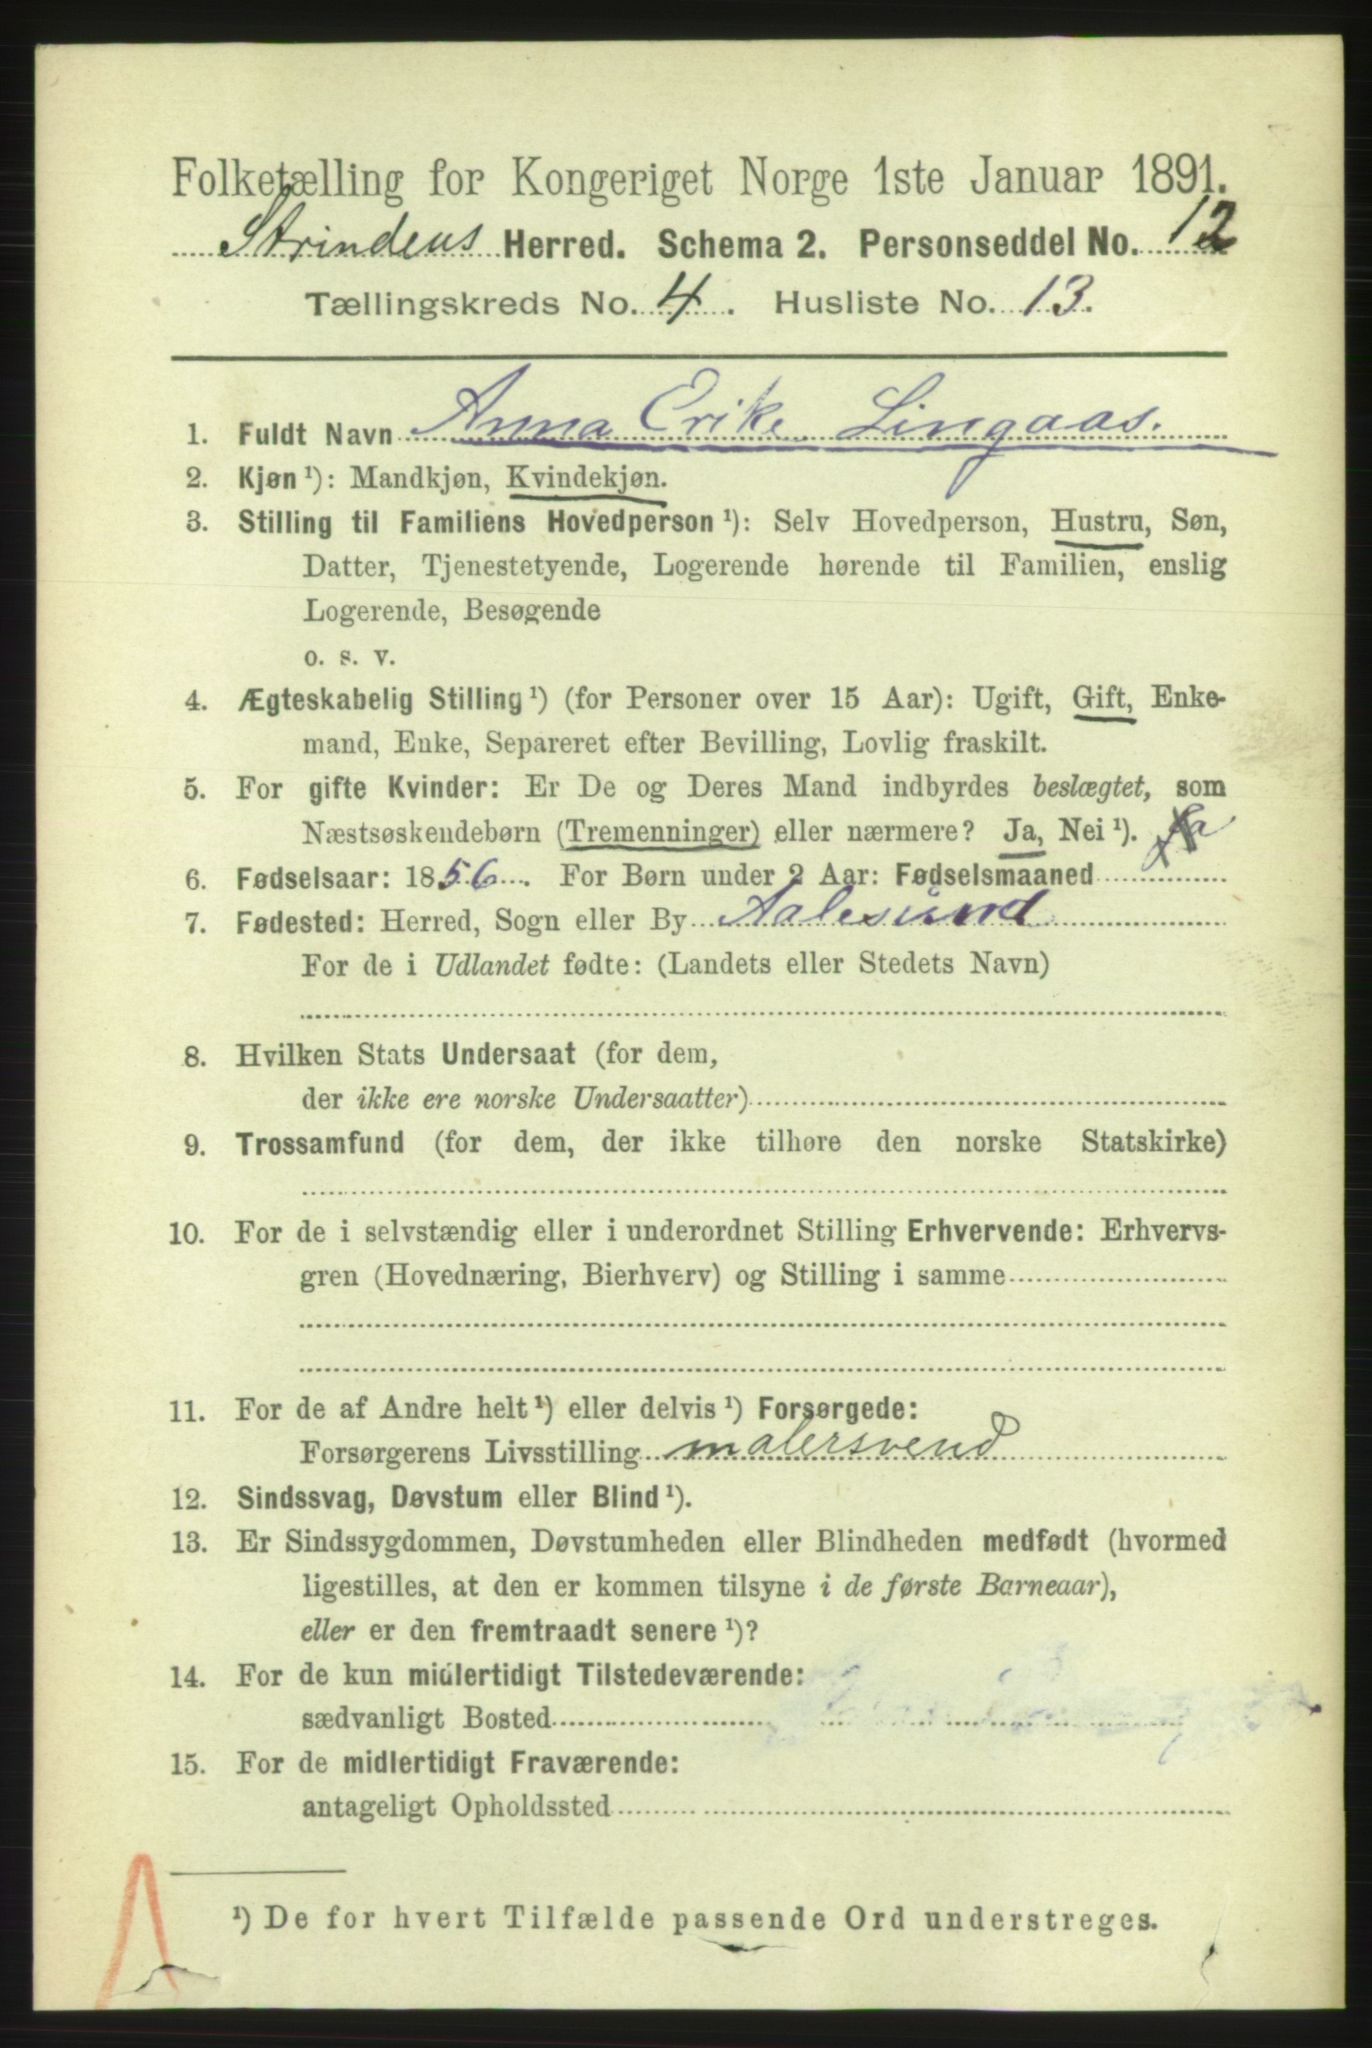 Folketælling for Kongeriget Norge 1ste Januar 1891.
Strindens Herred. Schema 2. Personseddel No. 12
Tællingskreds No. 4. Husliste No. 13.
1. Fuldt Navn Anna Erike Lingaas.
2. Kjøn ¹): Mandkjøn, Kvindekjøn.
3. Stilling til Familiens Hovedperson ¹): Selv Hovedperson, Hustru, Søn,
Datter, Tjenestetyende, Logerende hørende til Familien, enslig
Logerende, Besøgende
o. s. v.
4. Ægteskabelig Stilling ¹) (for Personer over 15 Aar): Ugift, Gift, Enke-
mand, Enke, Separeret efter Bevilling, Lovlig fraskilt.
5. For gifte Kvinder: Er De og Deres Mand indbyrdes beslægtet, som
Næstsøskendebørn (Tremenninger) eller nærmere? Ja, Nei ¹). Ja
6. Fødselsaar: 1856. For Børn under 2 Aar: Fødselsmaaned
7. Fødested: Herred, Sogn eller By Aalesund
For de i Udlandet fødte: (Landets eller Stedets Navn)
8. Hvilken Stats Undersaat (for dem,
der ikke ere norske Undersaatter)
9. Trossamfund (for dem, der ikke tilhøre den norske Statskirke)
10. For de i selvstændig eller i underordnet Stilling Erhvervende: Erhvervs-
gren (Hovednæring, Bierhverv) og Stilling i samme
11. For de af Andre helt ¹) eller delvis ¹) Forsørgede:
Forsørgerens Livsstilling malersvend
12. Sindssvag, Døvstum eller Blind ¹).
13. Er Sindssygdommen, Døvstumheden eller Blindheden medfødt (hvormed
ligestilles, at den er kommen tilsyne i de første Barneaar),
eller er den fremtraadt senere ¹)?
14. For de kun midlertidigt Tilstedeværende:
sædvanligt Bosted
15. For de midlertidigt Fraværende:
antageligt Opholdssted
¹) De for hvert Tilfælde passende Ord understreges.